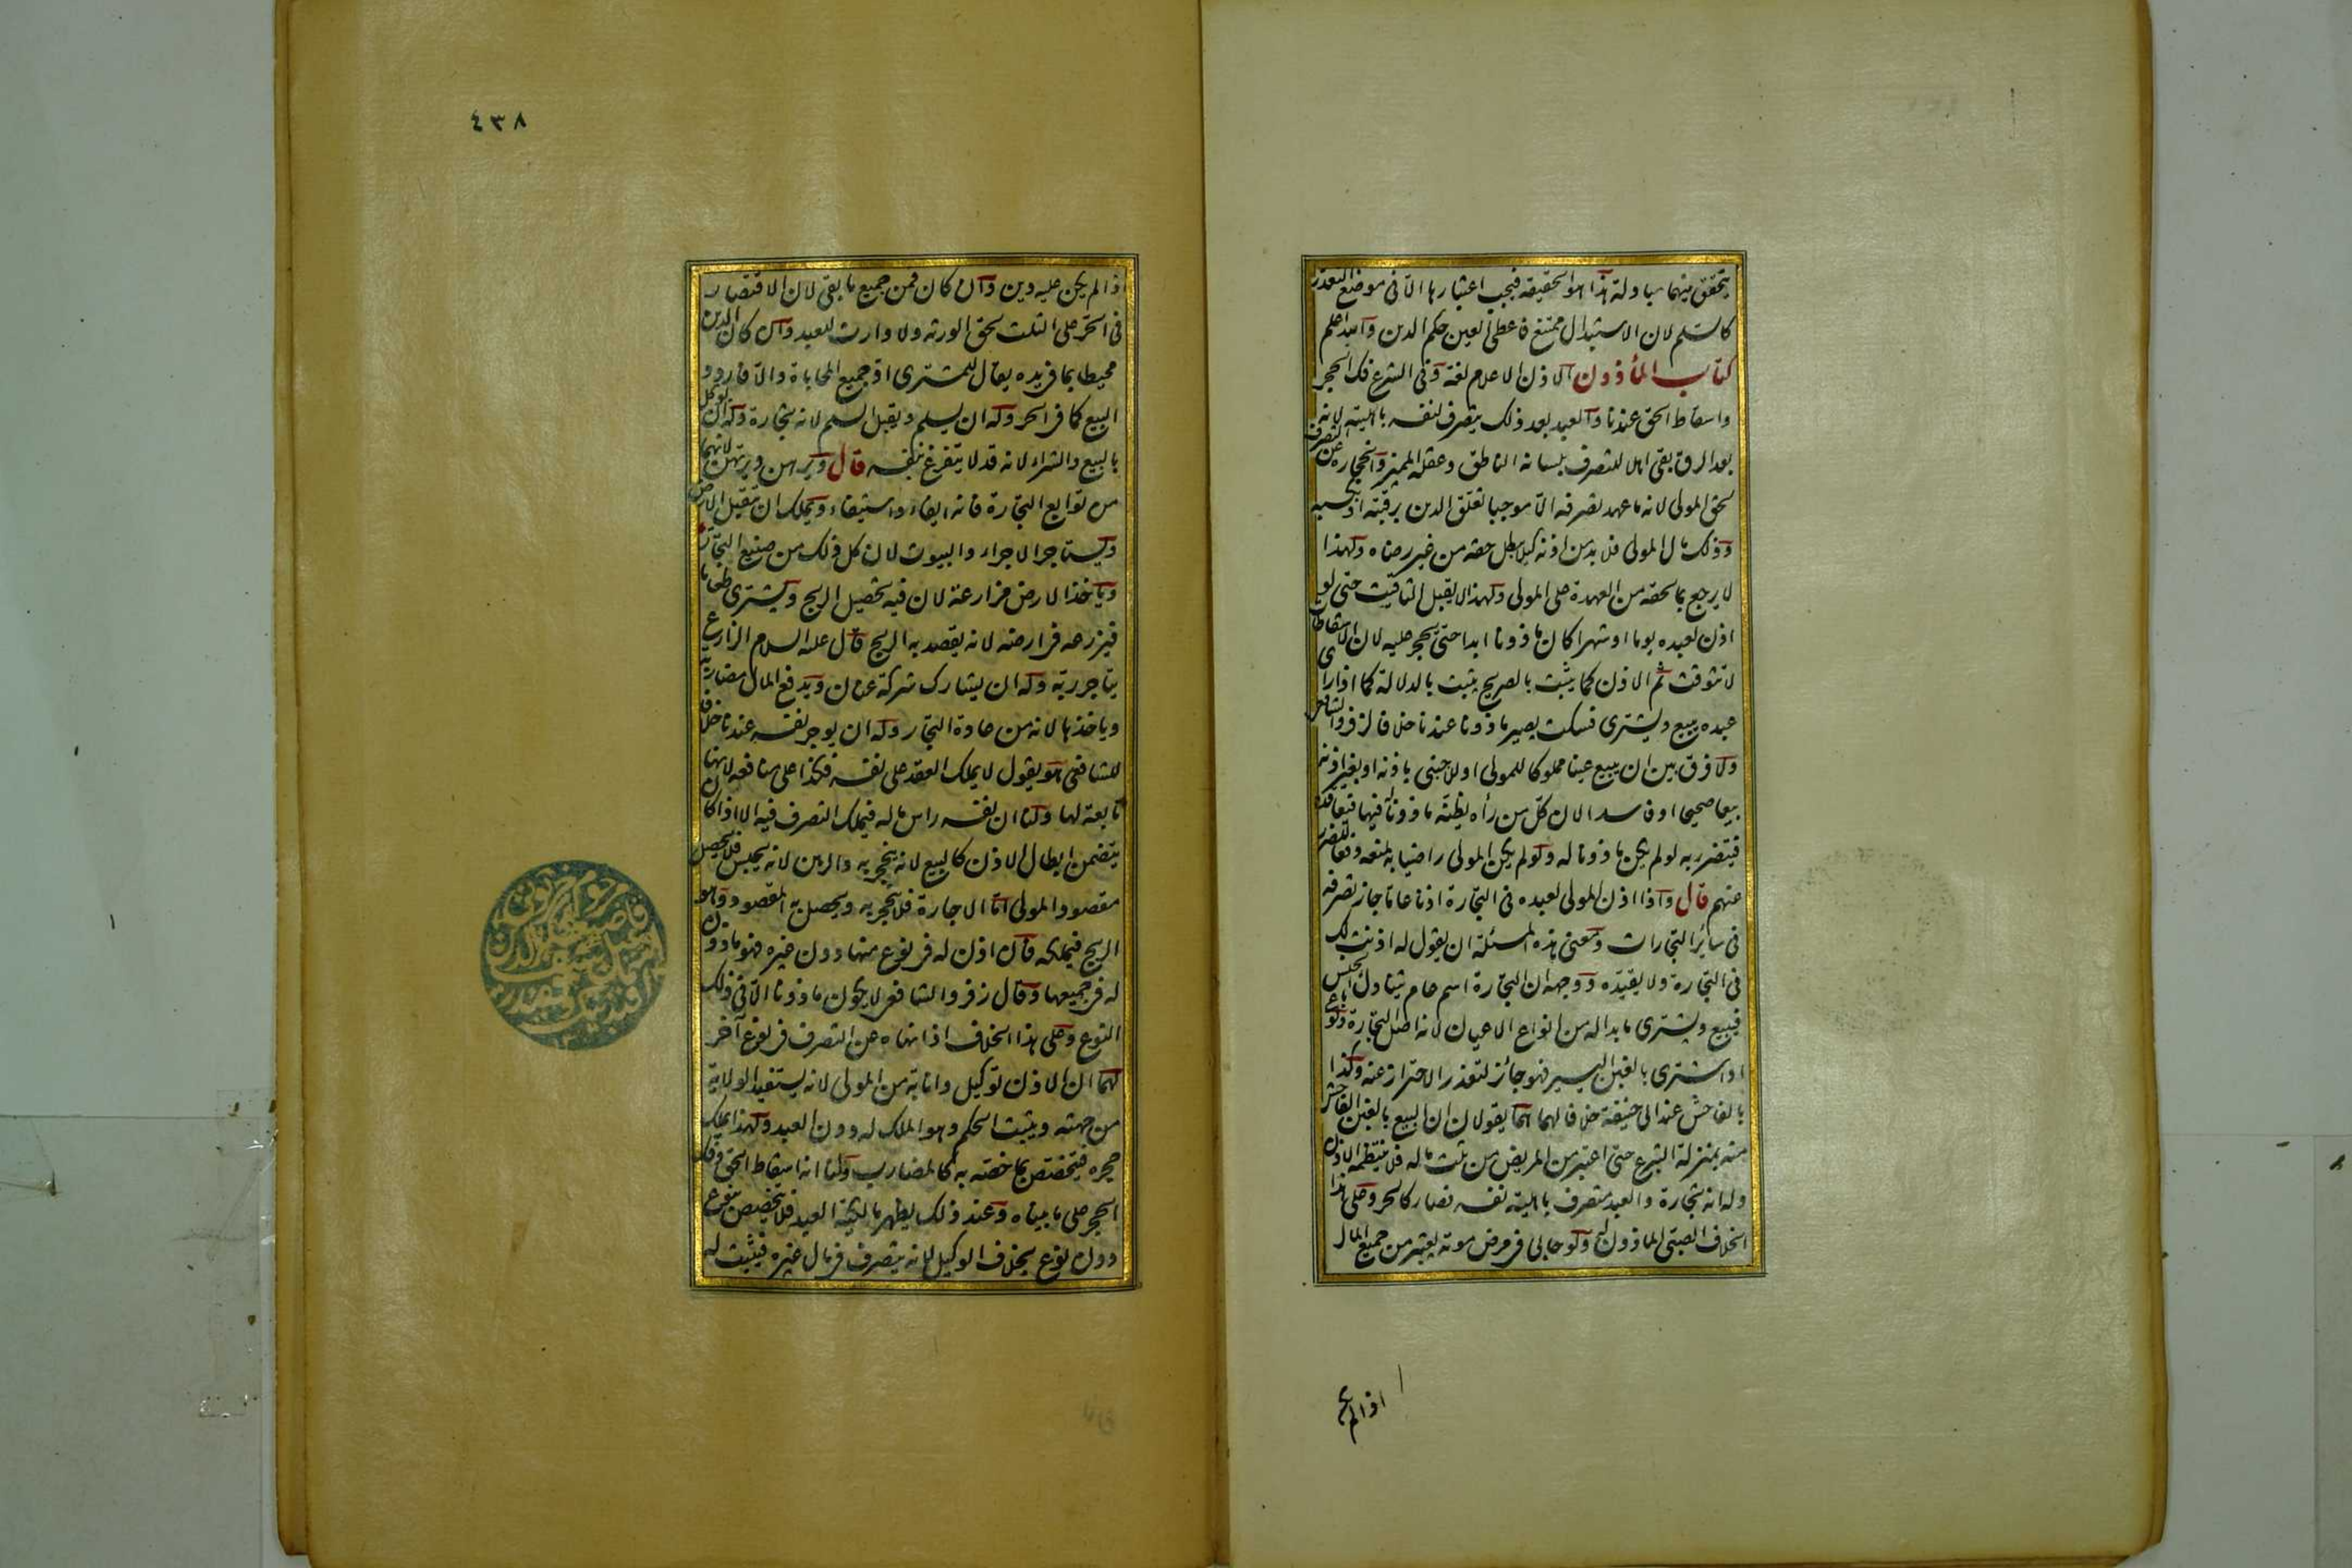 يتحقق بينهما مبادلة هذا هو الحقيقة فيجب اعتبارها الا فى موضع التعذر
كالسلم لان الاستبدال ممتنع فاعطى العين حكم الدين والله اعلم
كتاب المأذون الاذن الاعلام لغة وفى الشرع فك الحجر
واسقاط الحق عندنا والعبد بعد ذلك يتصرف لنفسه باهليته لانه
بعد الرق بقى اهلا للتصرف بلسانه الناطق وعقله المميز وانحجاره عن التصرف
لحق المولى لانه ما عهد تصرفه الا موجبا تعلق الدين برقبته او بكسبه
وذلك مال المولى فلا بد من اذنه كيلا يبطل حقه من غير رضاه ولهذا
لا يرجع بما لحقه من العهدة على المولى ولهذا لا يقبل التاقيت حتى لو
اذن لعبده يوما او شهرا كان ماذونا ابدا حتى يحجر عليه لان الاسقاطات
لا تتوقت ثم الاذن كما يثبت بالصريح يثبت بالدلالة كما اذا رأى
عبده يبيع ويشترى فسكت يصير ماذونا عندنا خلافا لزفر والشافعى
ولا فرق بين ان يبيع عينا مملوكا للمولى او للاجنبى باذنه او بغير اذنه
بيعا صحيحا او فاسدا لان كل من رآه يظنه ماذونا له فيها فيعاقده
فيتضرر به لو لم يكن ماذونا له ولو لم يكن المولى راضيا به لمنعه دفعا للضرر
عنهم قال واذا اذن المولى لعبده فى التجارة اذنا عاما جاز تصرفه
فى سائر التجارات ومعنى هذه المسئلة ان يقول له اذنت لك
فى التجارة ولا يقيده ووجهه ان التجارة اسم عام يتناول الجنس
فيبيع ويشترى ما بدا له من انواع الاعيان لانه اصل التجارة ولو باع
او اشترى بالغبن اليسير فهو جائز لتعذر الاحتراز عنه وكذا
بالفاحش عند ابى حنيفة خلافا لهما هما يقولان ان البيع بالغبن الفاحش
منه بمنزلة التبرع حتى اعتبر من المريض من ثلث ماله فلا ينتظمه الاذن
وله انه تجارة والعبد متصرف باهلية نفسه فصار كالحر وعلى هذا
الخلاف الصبى الماذون له ولو حابى فى مرض موته يعتبر من جميع المال
اذا لم
٤٣٨
اذا لم يكن عليه دين وان كان فمن جميع ما بقى لان الاقتصار
فى الحر على الثلث لحق الورثة ولا وارث للعبد وان كان الدين
محيطا بما فى يده يقال للمشترى اد جميع المحاباة والا فاردد
البيع كما فى الحر وله ان يسلم ويقبل السلم لانه تجارة وله ان يوكل
بالبيع والشراء لانه قد لا يتفرغ بنفسه قال ويرهن ويرتهن لانهما
من توابع التجارة فانه ايفاء واستيفاء ويملك ان يتقبل الارض
ويستاجر الاجراء والبيوت لان كل ذلك من صنيع التجار
وياخذ الارض مزارعة لان فيه تحصيل الربح ويشترى طعاما
فيزرعه فى ارضه لانه يقصد به الربح قال عليه السلام الزارع
يتاجر ربه وله ان يشارك شركة عنان ويدفع المال مضاربة
وياخذها لانه من عادة التجار وله ان يوجر نفسه عندنا خلافا
للشافعى هو يقول لا يملك العقد على نفسه فكذا على منافعه لانها
تابعة لها ولنا ان نفسه راس ماله فيملك التصرف فيه الا اذا كان
يتضمن ابطال الاذن كالبيع لانه ينحجر به والرهن لانه يحبس فلا يحصل
مقصود المولى اما الاجارة فلا ينحجر به ويحصل به المقصود وهو
الربح فيملكه قال اذن له فى نوع منها دون غيره فهو ماذون
له فى جميعها وقال زفر والشافعى لا يكون ماذونا الا فى ذلك
النوع وعلى هذا الخلاف اذا نهاه عن التصرف فى نوع آخر
لهما ان الاذن توكيل وانابة من المولى لانه يستفيد الولاية
من جهته ويثبت الحكم وهو الملك له دون العبد ولهذا يملك
حجره فيتخصص بما خصه به كالمضارب ولنا انه اسقاط الحق وفك
الحجر على ما بيناه وعند ذلك يظهر مالكية العبد فلا يتخصص بنوع
دون نوع بخلاف الوكيل لانه يتصرف فى مال غيره فيثبت له